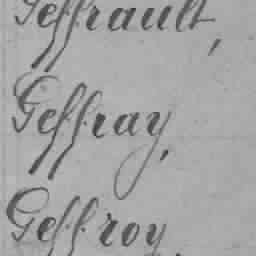 Geffrault,
Geffray,
Geffroy,